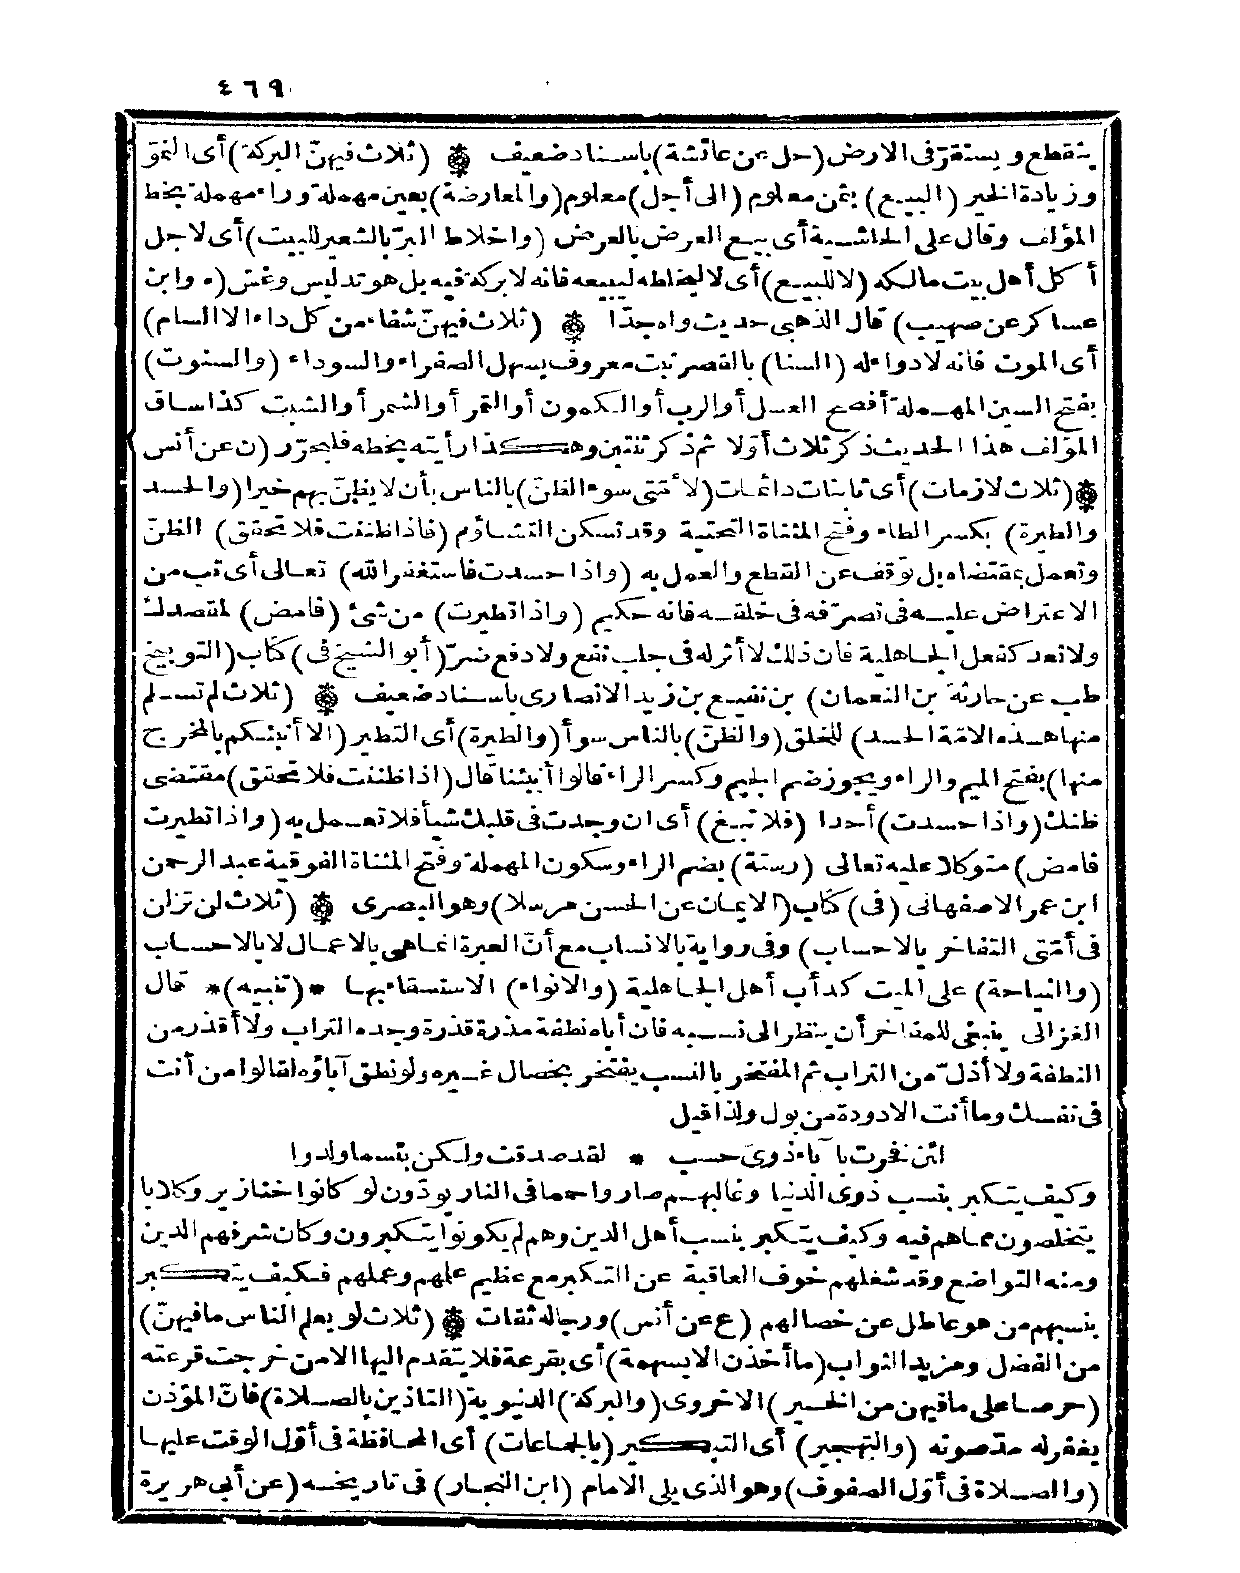 ٤٦٩
ينقطع ويستقر فى الارض (حل عن عائشة) باسناد ضعيف ۞ (ثلاث فيهنّ البركة) أى النموّ
وزيادة الخير (البيع) بثمن معلوم (الى أجل) معلوم (والمعارضة) بعين مهملة وراء مهملة بخط
المؤلف وقال على الحاشية أى بيع العرض بالعرض (واخلاط البرّ بالشعير للبيت) أى لاجل
أكل أهل بيت مالكه (لا للبيع) أى لا ليخلطه ليبيعه فانه لا بركة فيه بل هو تدليس وغش (ه وابن
عساكر عن صهيب) قال الذهبى حديث واه جدّا ۞ (ثلاث فيهنّ شفاء من كل داء الا السام)
أى الموت فانه لا دواء له (السنا) بالقصر نبت معروف يسهل الصفراء والسوداء (والسنوت)
بفتح السين المهملة أفصح العسل أو الرب أو الكمون أو التمر أو الشمر أو الشبت كذا ساق
المؤلف هذا الحديث ذكر ثلاث أوّلا ثم ذكر ثنتين وهكذا رأيته بخطه فليحرّر (ن عن أنس
۞ (ثلاث لازمات) أى ثابتات دائمات (لأمّتى سوء الظنّ) بالناس بأن لا يظنّ بهم خيرا (والحسد
والطيرة) بكسر الطاء وفتح المثناة التحتية وقد تسكن التشاؤم (فاذا ظننت فلا تحقق) الظنّ
وتعمل بمقتضاه بل توقف عن القطع والعمل به (واذا حسدت فاستغفر الله) تعالى أى تب من
الاعتراض عليه فى تصرّفه فى خلقه فانه حكيم (واذا تطيرت) من شئ (فامض) لمقصدك
ولا تعد كفعل الجاهلية فان ذلك لا أثر له فى جلب نفع ولا دفع ضرّ (أبو الشيخ فى) كتاب (التوبيخ
طب عن حارثة بن النعمان) بن نفيع بن زيد الانصارى باسناد ضعيف ۞ (ثلاث لم تسلم
منها هذه الامّة الحسد) للخلق (والظنّ) بالناس سوأ (والطيرة) أى التطير (الا أنبئكم بالمخرج
منها) بفتح الميم والراء ويجوز ضم الجيم وكسر الراء قالوا أنبئنا قال (اذا ظننت فلا تحقق) مقتضى
ظنك (واذا حسدت) أحدا (فلا تبغ) أى ان وجدت فى قلبك شيأ فلا تعمل به (واذا تطيرت
فامض) متوكلا عليه تعالى (رستة) بضم الراء وسكون المهملة وفتح المثناة الفوقية عبد الرحمن
ابن عمر الاصفهانى (فى) كتاب (الايمان عن الحسن مرسلا) وهو البصرى ۞ (ثلاث لن تزان
فى أمّتى التفاخر بالاحساب) وفى رواية بالانساب مع أنّ العبرة انما هى بالاعمال لا بالاحساب
(والنياحة) على الميت كدأب أهل الجاهلية (والانواء) الاستسقاء بها * (تنبيه) * قال
الغزالى ينبغى للمفاخر أن ينظر الى نسبه فان أباه نطفة مذرة قذرة وجده التراب ولا أقذر من
النطفة ولا أذلّ من التراب ثم المفتخر بالنسب يفتخر بخصال غيره ولو نطق آباؤه لقالوا من أنت
فى نفسك وما أنت الا دودة من بول ولذا قيل
ائن نفرت بآباء ذوى حسب * لقد صدقت ولكن بئسما ولدوا
وكيف يتكبر بنسب ذوى الدنيا وغالبهم صاروا حمما فى النار يودّون لو كانوا خنازير وكلابا
يتخلصون مما هم فيه وكيف يتكبر بنسب أهل الدين وهم لم يكونوا يتكبرون وكان شرفهم الدين
ومنه التواضع وقد شغلهم خوف العاقبة عن التكبر مع عظيم علمهم وعملهم فكيف يتكبر
بنسبهم من هو عاطل عن خصالهم (ع عن أنس) ورجاله ثقات ۞ (ثلاث لو يعلم الناس ما فيهنّ)
من الفضل ومزيد الثواب (ما أخذن الا بسهمة) أى بقرعة فلا يتقدم اليها الا من خرجت قرعته
(حرصا على ما فيهن من الخير) الاخروى (والبركة) الدنيوية (التاذين بالصلاة) فانّ المؤذن
يغفر له مدّ صوته (والتهجير) أى التبكير (بالجماعات) أى المحافظة فى أوّل الوقت عليها
(والصلاة فى أوّل الصفوف) وهو الذى يلى الامام (ابن النجار) فى تاريخه (عن أبى هريرة